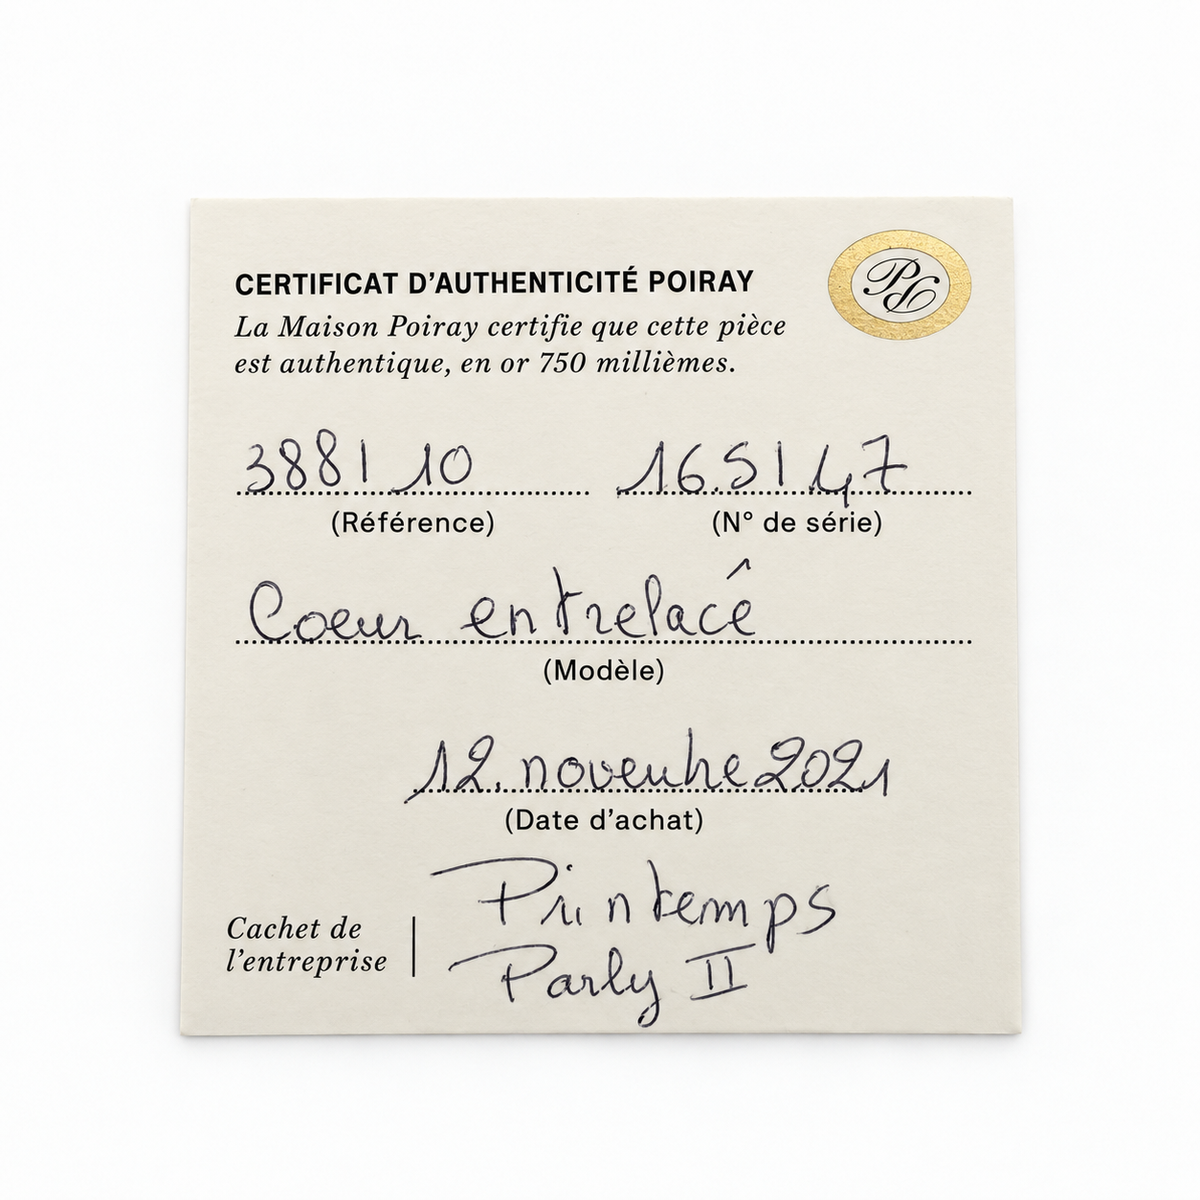 CERTIFICAT D'AUTHENTICITÉ POIRAY
La Maison Poiray certifie que cette pièce
est authentique, en or 750 millièmes.
388110 165147
(Référence) (N° de série)
Coeur entrelacê
(Modèle)
12. novembre 2021
(Date d'achat)
Printemps
Parly II
Cachet de
l'entreprise